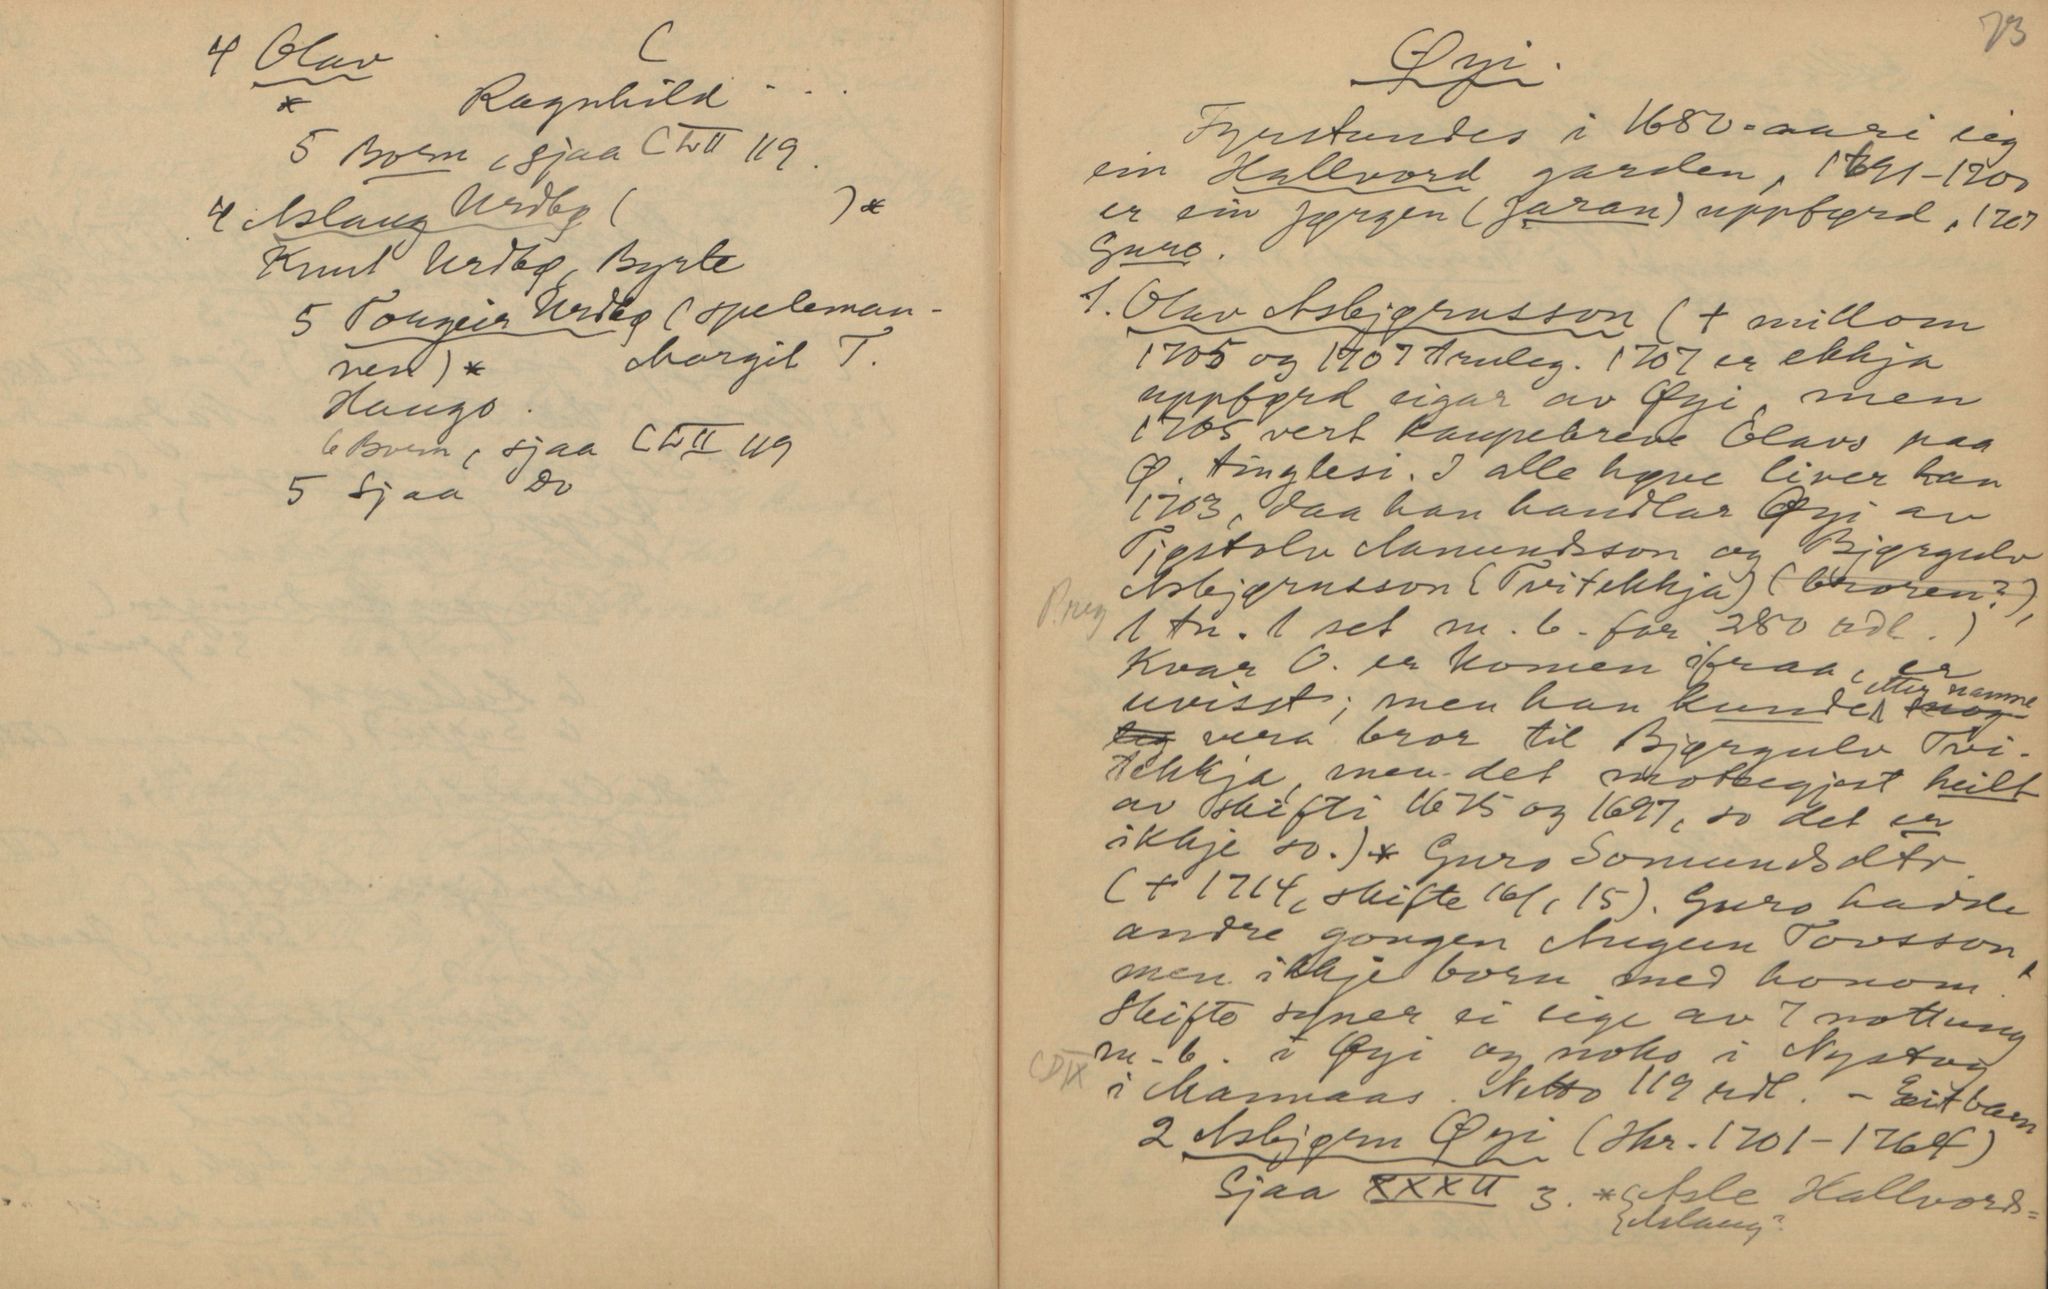 4 Olav (
* Ragnhild - . .
5 Born, sjaa CLVII 119.
4 Aslaug Urdbø ( ) *
Knut Urdbø, Byrte
5 Torgeir Urdbø (speleman-
nen) * Margit T.
Haugo.
6 Born, sjaa CLVII 119
5 Sjaa Do
73
Øyi.
Fyrstundes i 1680-aari eig
ein Hallvord garden, 1691-1700
er ein Jørgen (Jøran) uppførd, 1707
Guro.
1. Olav Asbjørnsson († millom
1705 og 1707 truleg. 1707 er ekkja
uppførd eigar av Øyi, men
1705 vert kaupebreve Olavs paa
Ø. tinglesi. I alle høve liver han
1703, daa han handlar Øyi av
Tjøstolv Aamundsson og Bjørgulv
Asbjørnsson (Tvitekkja) (broren?),
P. reg 1 tn. 1 set m. b. for 280 rdl.)
Kvar O. er komen ifraa, er
uvisst; men han kunde etter namne mog-
leg vera bror til Bjørgulv Tvi-
tekkja, men det motsegjest heilt
av skifti 1675 og 1697, so det er
ikkje so.) * Guro Somundsdtr.
(† 1714, skifte 16/1 15). Guro hadde
andre gongen Augun Tovsson,
men ikkje born med honom.
Skifte syner ei eige av 7 nottung
CDIX m. b. i Øyi og noko i Nystog
i Mannaas. Netto 119 rdl. - Eit barn
2 Asbjørn Øyi (Skr. 1701-1764)
Sjaa XXXII 3. * {Asle Hallvords=
{Aslaug?